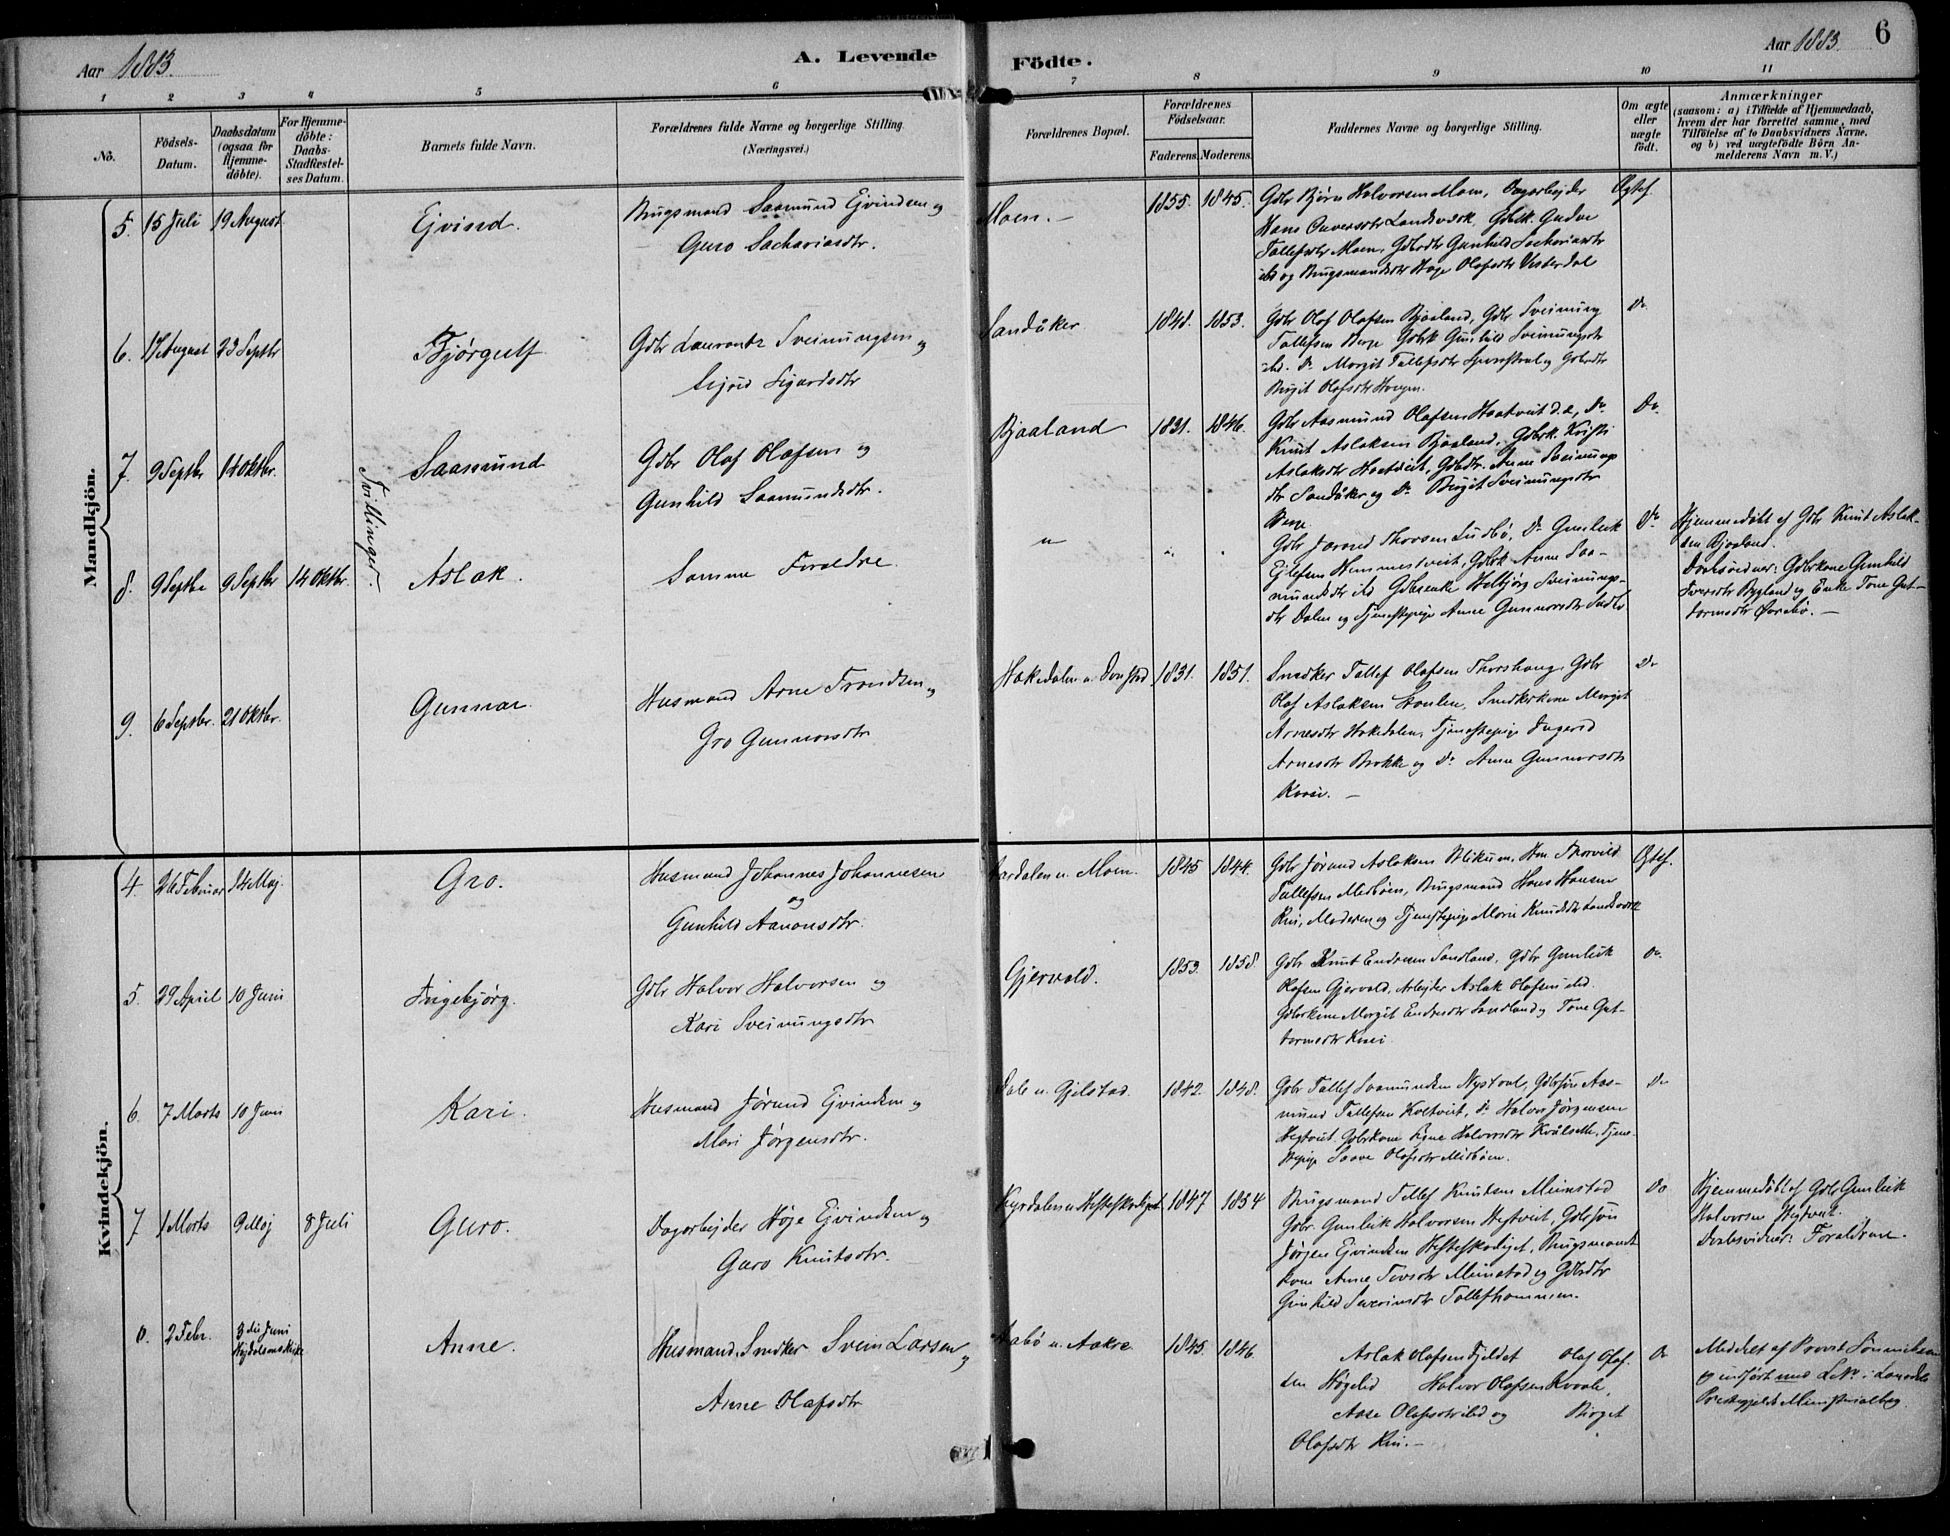 Aar 1883.
A. Levende
Födte.
Aar 1883.
6
1 2 3 4 5 6 7 8 9 10 11
Nö.
Födsels-
Datum.
Daabsdatum
(ogsaa for
Hjemme-
döbte).
For Hjemme-
döbte:
Daabs-
Stadfæstel-
ses Datum.
Barnets fulde Navn.
Forældrenes fulde Navne og borgerlige Stilling.
(Næringsvei.)
Forældrenes Bopæl.
Forældrenes
Födselsaar.
Faderens. Moderens.
Faddernes Navne og borgerlige Stilling.
Om ægte
eller
uægte
födt.
Anmærkninger
(saasom: a) i Tilfælde af Hjemmedaab,
hvem der har forrettet samme, med
Tilföielse af to Daabsvidners Navne,
og b) ved uægtefödte Börn An-
melderens Navn m. V.)
Mandkjön.
5. 15 Juli 19 August
Ejvind.
Brugsmand Saamund Ejvindsen og
Guro Sachariasdtr.
Moen. –
1855. 1845.
Gdbr Bjørn Halvorsen Moen, Dagarbejder
Hans Landsverk, Gdbrk. Gudve
Tallefsdtr Moen, Gdbrdtr Gunhild Sachariasdtr
ibd og Brugsmandsdtr Hæge Olafsdtr Vesterdal
Ægtef.
6. 17 August 23 Septbr
Bjørgulf
Gdbr Laurantz Sveinungsen og
Sigrid Sigurdsdtr
Sandåker
1848. 1853.
Gdbr Olaf Olafsen Bjaaland, Gdbr Sveinung
Tallefsen Berge Gdbrk Gunhild Sveinungsdtr
ibd. Do Margit Tallefsdtr og Gdbrdtr
Birgit Olafsdtr Haugen.
Do
7. 9 Septbr 14 Oktbr.
Tvillinger.
Saamund
Gdbr Olaf Olafsen og
Gunhild Saamundsdtr.
Bjaaland
1831. 1846.
Gdbr Aasmund Olafsen Haatveit d.e, Do
Knut Aslaksen Bjaaland, Gdbrk. Kristi
Aslaksdtr Haatveit, Gdbdtr. Anne Sveinungs
dtr Sandåker og Do Birgit Sveinungsdtr
Berge
Do
8. 9 Septbr 9 Septbr 14 Oktbr.
Aslak.
Samme Forældre.
"
Gdbr Jørund Thorsen Sudbø, Do Gunleik
Ejlefsen Hemmestveit, Gdbrk Anne Saa-
mundsdtr ibd Gdbrenke Halbjørg Sveinungs-
dtr Dalen og Tjenestepige Anne Gunnarsdtr Sudbø
Do
Hjemmedøbt af Gdbr Knut Aslak-
sen Bjaaland.
Daabsvidner: Gdbrkone Gunhild
Iversdtr Bygland og Enke Tone Gut-
tormsdtr Ørebø. –
9. 6 Septbr. 21 Oktbr.
Gunnar.
Husmand Arne Trondsen og
Gro Gunnarsdtr
Hakedalen u. Donstad
1831. 1851.
Snedker Tallef Olafsen Thorshaug, Gdbr
Olaf Aslaksen Haulen, Snedkerkone Margit
Arnesdtr Hakedalen, Tjenestepige Ingerid
Arnesdtr Brokke og Do Anne Gunnarsdtr
Kaasi. –
Do
Kvindekjön.
4. 26 Februar 14 Maj.
Gro.
Husmand Johannes Johannesen
og
Gunhild Aanonsdtr.
Aardalen u. Moen.
1845 1844.
Gdbr Jørund Aslaksen Blikum, Hm. Thorvild
Tallefsen Midbøen, Brugsmand Hans Hansen
Rui, Moderen og Tjenestepige Marie Knudsdtr Landsverk
Ægtef.
5. 29 April 10 Juni
Ingebjørg.
Gdbr Halvor Halvorsen og
Kari Sveinungsdtr
Gjervold.
1853. 1858.
Gdbr Knut Endresen Sandland, Gdbr Gunleik
Olafsen Gjervold, Arbejder Aslak Olafsen ibd.
Gdbrkone Margit Endresdtr Sandland og Tone Gut-
tormsdtr Rui
Do
6. 7 Marts 10 Juni
Kari.
Husmand Jørund Ejvindsen og
Mari Jørgensdtr.
Dale u. Gjelstad.
1842. 1848.
Gdbr Tallef Saamundsen Nystaal, Gdbsøn Aas-
mund Tallefsen Kaltveit, Do Halvor Jørgensen
Hegtveit, Gdbrkone Signe Halvorsdtr Kvålsette, Tjene-
stepige Saave Olafsdtr Midbøen.
Do
7 1 Marts 9 Maj 8 Juli
Guro.
Dagarbejder Høje Ejvindsen og
Guro Knutsdtr.
1847 1854
Brugsmand Tallef Knutsen Mimstad
Gdbr. Gunleik Halvorsen Hegtveit, Gdbsøn
Jørgen Ejvindsen Hefteskodiget, Brugsmands
kone Anne Tovsdtr Mimstad og Gdbdtr
Gunhild Severinsdtr Tallefshommen.
Do
Hjemmedøbt af Gdbr Gunleik
Halvorsen Hegtveit.
Daabsvidner: Forældrene.
8. 2 Febr. 3die Juni
Anne.
Husmand, Snedker Svein Larsen og
Anne Olafsdtr
Aabø u. Aakre
1845. 1846.
Aslak Olafsen Fjeldet Olaf Olaf-
sen Høgelid Halvor Olafsen Kvaale,
Aase Olafsdtr ibd og Birget
Olafsdtr Rui. –
Do
Meddelt af Provst
og indført uden L. No i Laurdals
Præstegjelds Ministerialbog.